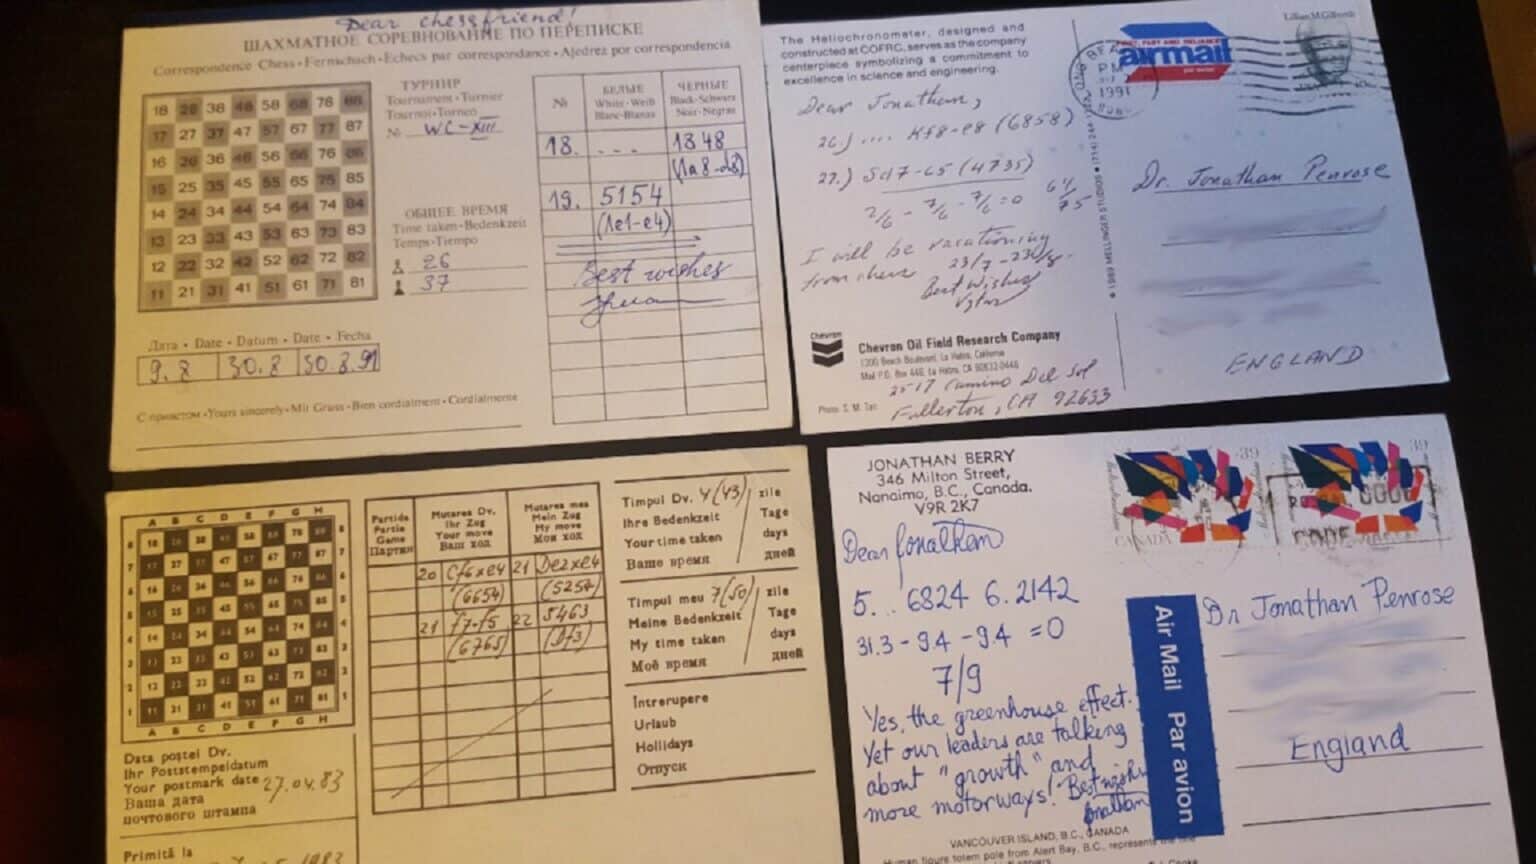 Dear chessfriend!
ШАХМАТНОЕ СОРЕВНОВАНИЕ ПО ПЕРЕПИСКЕ
Correspondence Chess • Fernschach • Echecs par correspondance • Ajedrez por correspondencia
18 28 38 48 58 68 78 88
17 27 37 47 57 67 77 87
16 26 36 46 56 66 76 86
15 25 35 45 55 65 75 85
14 24 34 44 54 64 74 84
13 23 33 43 53 63 73 83
12 22 32 42 52 62 72 82
11 21 31 41 51 61 71 81
ТУРНИР
Tournament • Turnier
Tournoi • Torneo
№ WC-XIII
ОБЩЕЕ ВРЕМЯ
Time taken • Bedenkzeit
Temps • Tiempo
26
37
№ БЕЛЫЕ ЧЕРНЫЕ
White • Weiß Black • Schwarz
Blanc • Blanas Noir • Negras
18. - - - 1848
(Ла8-d8)
19. 5154
(Ле1-e4)
Best wishes
Дата • Date • Datum • Date • Fecha
9.8 30.8 30.8.91
С приветом • Yours sincerely • Mit Gruss • Bien cordialment • Cordialmente
The Heliochronometer, designed and
constructed at COFRC, serves as the company
centerpiece symbolizing a commitment to
excellence in science and engineering.
Dear Jonathan,
26.) .... Kf8-e8 (6858)
27.) Sd7-c5 (4735)
2/6 - 7/6 - 7/6 = 0 64/75
I will be vacationing
from chess 23/7 - 23/8.
Best Wishes
Chevron
Chevron Oil Field Research Company
1300 Beach Boulevard, La Habra, California
Mail P.O. Box 446, La Habra, CA 90633-0446
2517 Camino Del Sol
Fullerton, CA 92633
© 1989 MELLINGER STUDIOS • (714)
Lillian M. Gilbreth
FIRST, FAST AND RELIABLE
airmail
par avion
PM
1991
Dr. Jonathan Penrose
ENGLAND
A B C D E F G H
18 28 38 48 58 68 78 88
17 27 37 47 57 67 77 87
16 26 36 46 56 66 76 86
15 25 35 45 55 65 75 85
14 24 34 44 54 64 74 84
13 23 33 43 53 63 73 83
12 22 32 42 52 62 72 82
11 21 31 41 51 61 71 81
A B C D E F G H
Data poștei Dv.
Ihr Poststempeldatum
Your postmark date 27.04.83
Ваша дата
почтового штампа
Primită la
Partida
Partie
Game
Партия
Mutarea Dv.
Ihr Zug
Your move
Ваш ход
Mutarea mea
Mein Zug
My move
Мой ход
20 Cf6xe4 21 De2xe4
(6654) (5254)
21 f7-f5 22 5463
(6765) (Df3)
Timpul Dv. 4 (43) zile
Ihre Bedenkzeit Tage
Your time taken days
Ваше время дней
Timpul meu 7 (50) zile
Meine Bedenkzeit Tage
My time taken days
Моё время дней
Întrerupere
Urlaub
Hollidays
Отпуск
JONATHAN BERRY
346 Milton Street,
Nanaimo, B.C., Canada.
V9R 2K7
Dear Jonathan
5... 6824 6.2142
31.3 - 9.4 - 9.4 = 0
7/9
Yes, the greenhouse effect.
Yet our leaders are talking
about "growth" and
more motorways! Best wishes
Jonathan
VANCOUVER ISLAND, B.C., CANADA
Human figure totem pole from Alert Bay, B.C., represents the
CANADA 39
39
CODE
CODE
Air Mail Par avion
Dr Jonathan Penrose
England